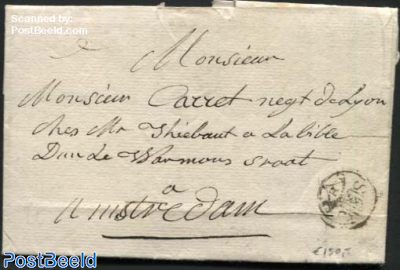 Scanned by:
PostBeeld.com
Monsieur
Monsieur Carret negt de Lyon
ches Mr Thiebaut a La bible
Dans Le Warmous straat
a
Amstredam
PostBeeld